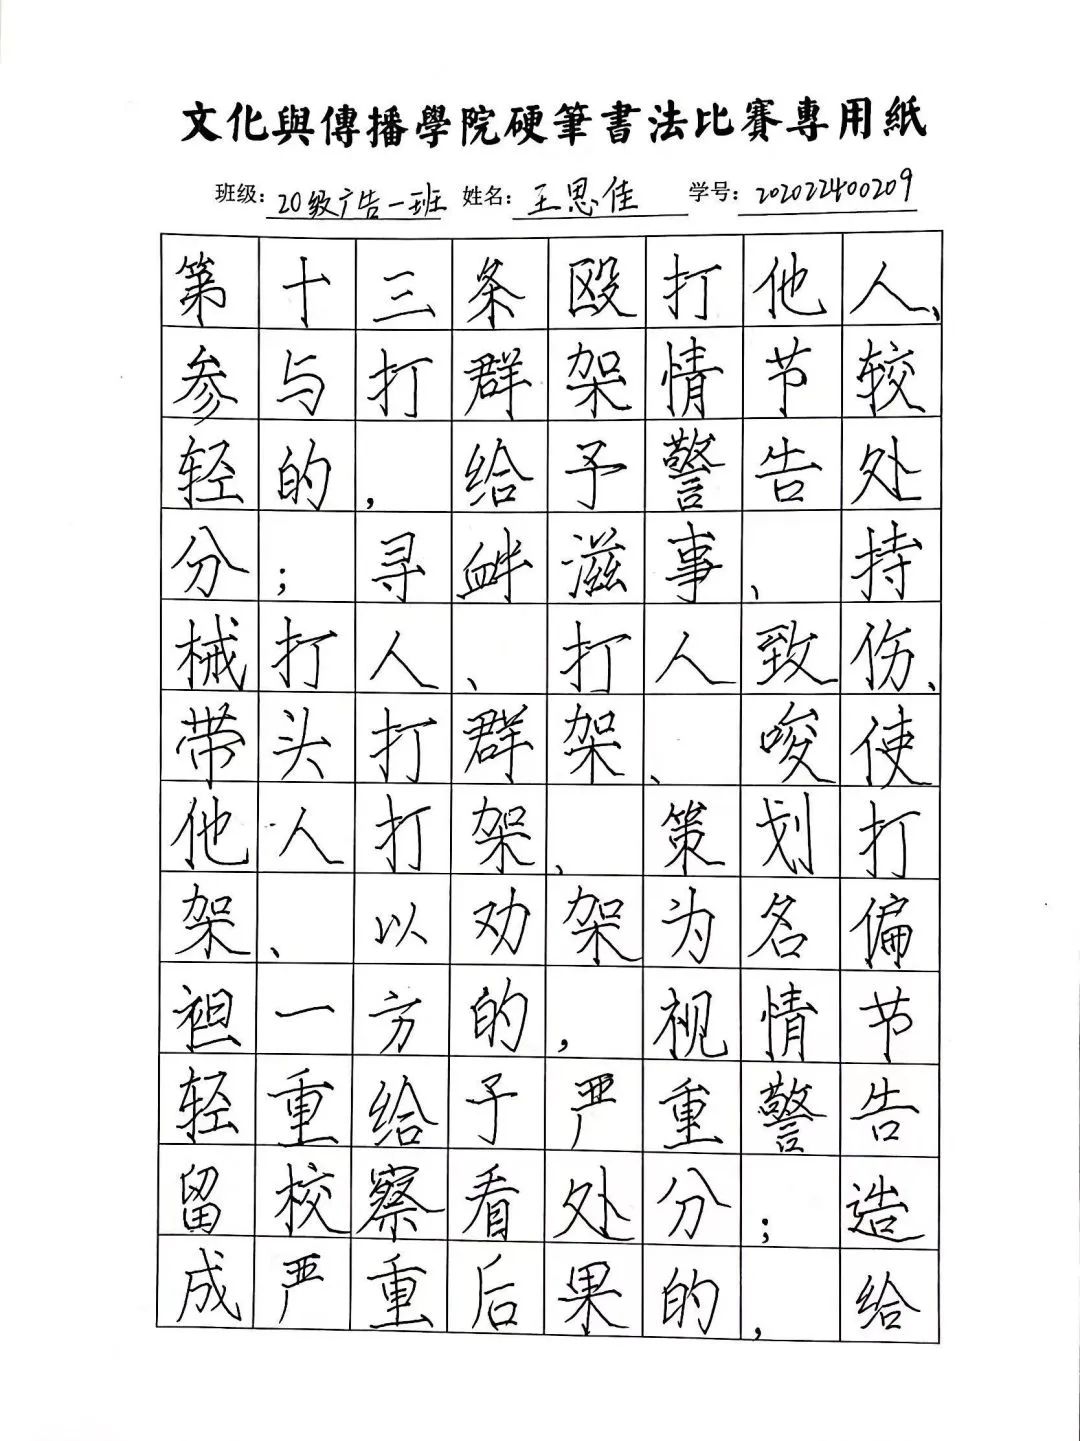 文化與傳播學院硬筆書法比賽專用紙
班级：20级广告一班 姓名：王思佳 学号：202022400209
第十三条殴打他人、
参与打群架情节较
轻的，给予警告处
分；寻衅滋事、持
械打人、打人致伤、
带头打群架、唆使
他人打架、策划打
架、以劝架为名偏
袒一方的，视情节
轻重给予严重警告
留校察看处分；造
成严重后果的，给